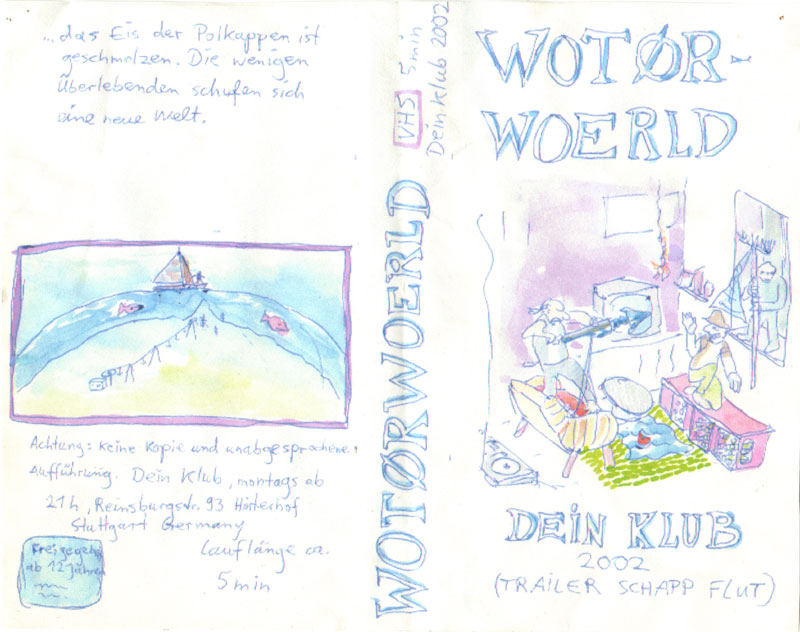 ...das Eis der Polkappen ist
geschmolzen. Die wenigen
Überlebenden schufen sich
eine neue Welt.
Achtung: keine Kopie und unabgesprochene
Aufführung. Dein Klub, montags ab
21h, Reinsburgstr. 93 Hinterhof
Stuttgart Germany
Freigegeben
ab 12 Jahren
Lauflänge ca.
5 min
VHS 5 min
Dein Klub 2002
WOTØRWOERLD
WOTØR-
WOERLD
DEIN KLUB
2002
(TRAILER SCHAPP FLUT)